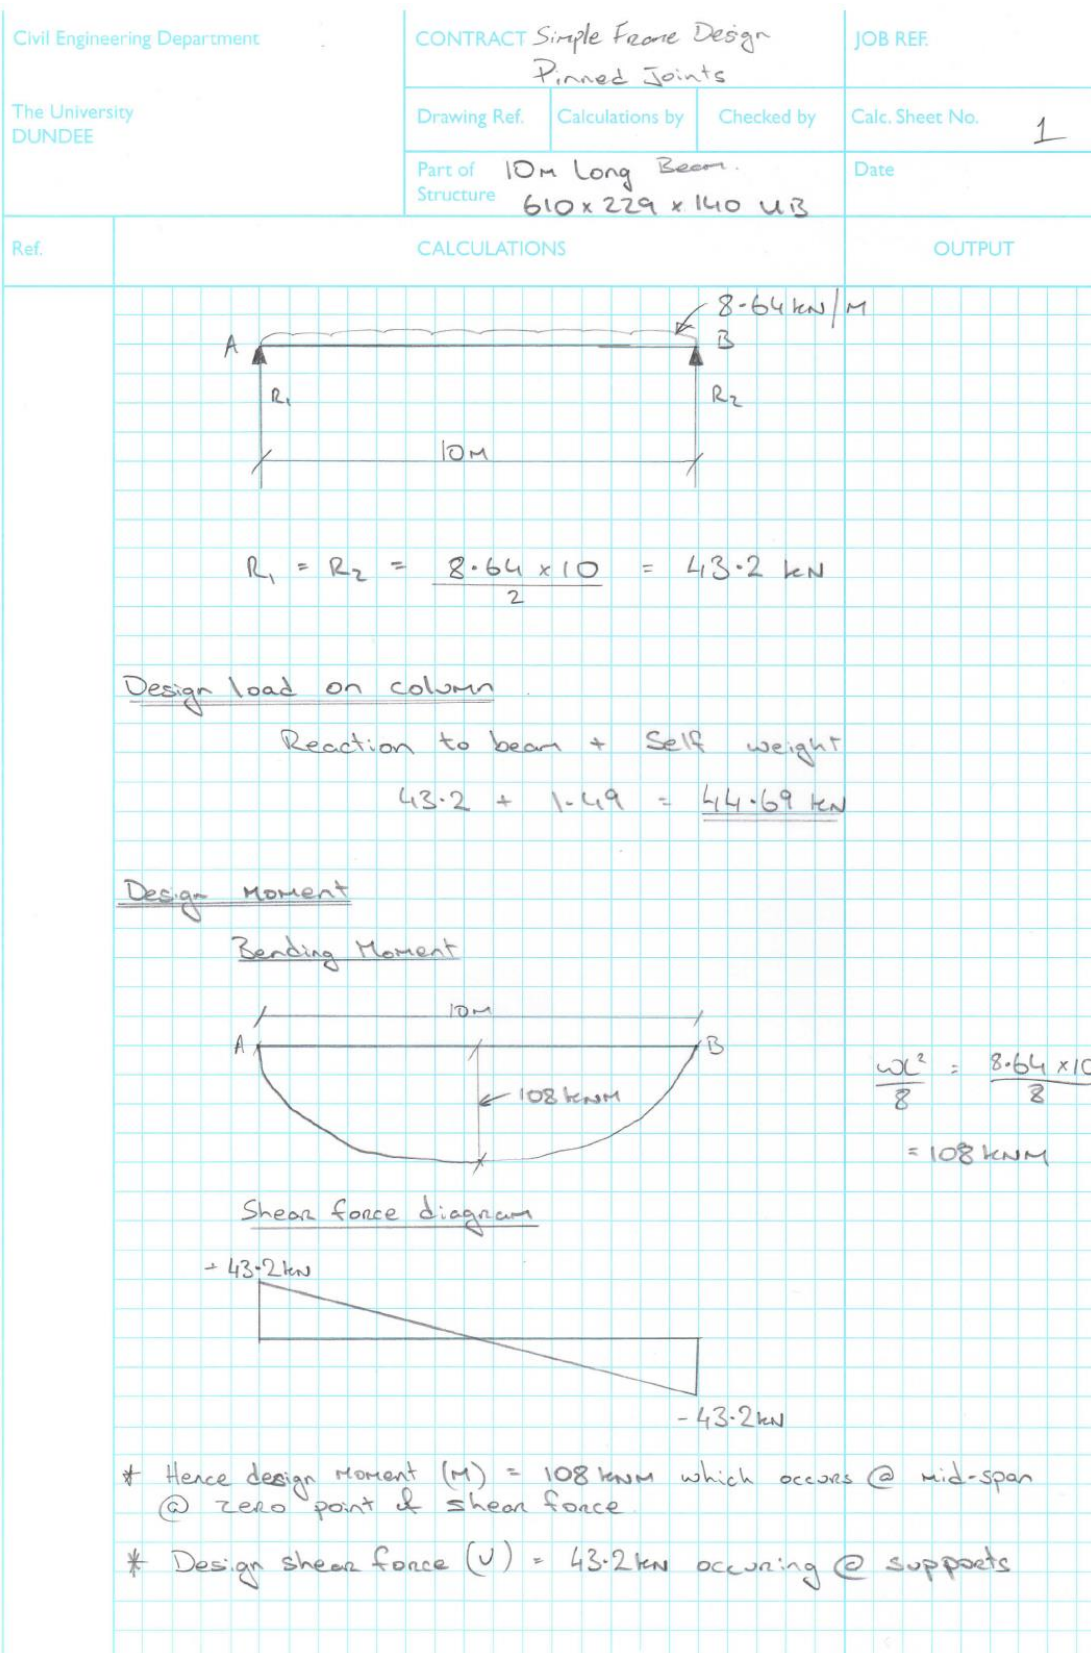 Civil Engineering Department
The University
DUNDEE
CONTRACT Simple Frame Design
Pinned Joints
JOB REF.
Drawing Ref.
Calculations by
Checked by
Calc. Sheet No. 1
Part of Structure 10m Long Beam.
610 x 229 x 140 UB
Date
Ref.
CALCULATIONS
OUTPUT
8.64 kN/m
A
B
R₁
R₂
10m
R₁ = R₂ = 8.64 x 10 / 2 = 43.2 kN
Design load on column
Reaction to beam + Self weight
43.2 + 1.49 = 44.69 kN
Design Moment
Bending Moment
10m
A
B
108 kNm
wL² / 8 = 8.64 x 10 / 8
= 108 kNm
Shear force diagram
+ 43.2 kN
- 43.2 kN
* Hence design moment (M) = 108 kNm which occurs @ mid-span
@ zero point of shear force
* Design shear force (V) = 43.2 kN occuring @ supports